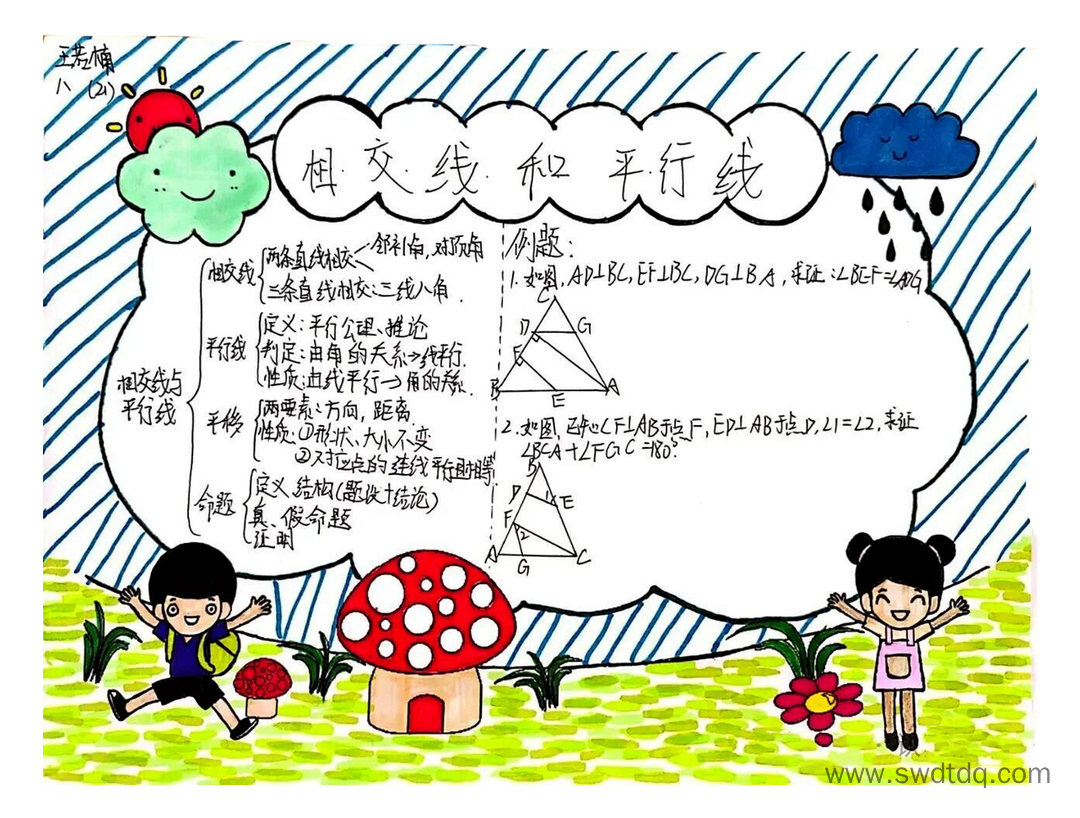 王若楠
八 (21)
相交线和平行线
相交线与
平行线
相交线
两条直线相交
邻补角,对顶角
三条直线相交:三线八角.
平行线
定义:平行公理、推论
判定:由角的关系→线平行.
性质:由线平行→角的关系.
平移
两要素:方向,距离.
性质:①形状、大小不变
②对应点的连线平行且相等
命题
定义、结构(题设+结论)
真、假命题
证明
例题:
1.如图,AD⊥BC,EF⊥BC,DG⊥BA,求证:∠BEF=∠ADG
C
D
G
F
B
E
A
2.如图,已知CF⊥AB于点F,ED⊥AB于点D,∠1=∠2,求证
∠BCA+∠FGC=180°
B
D
1
E
F
2
A
G
C
www.swdtdq.com